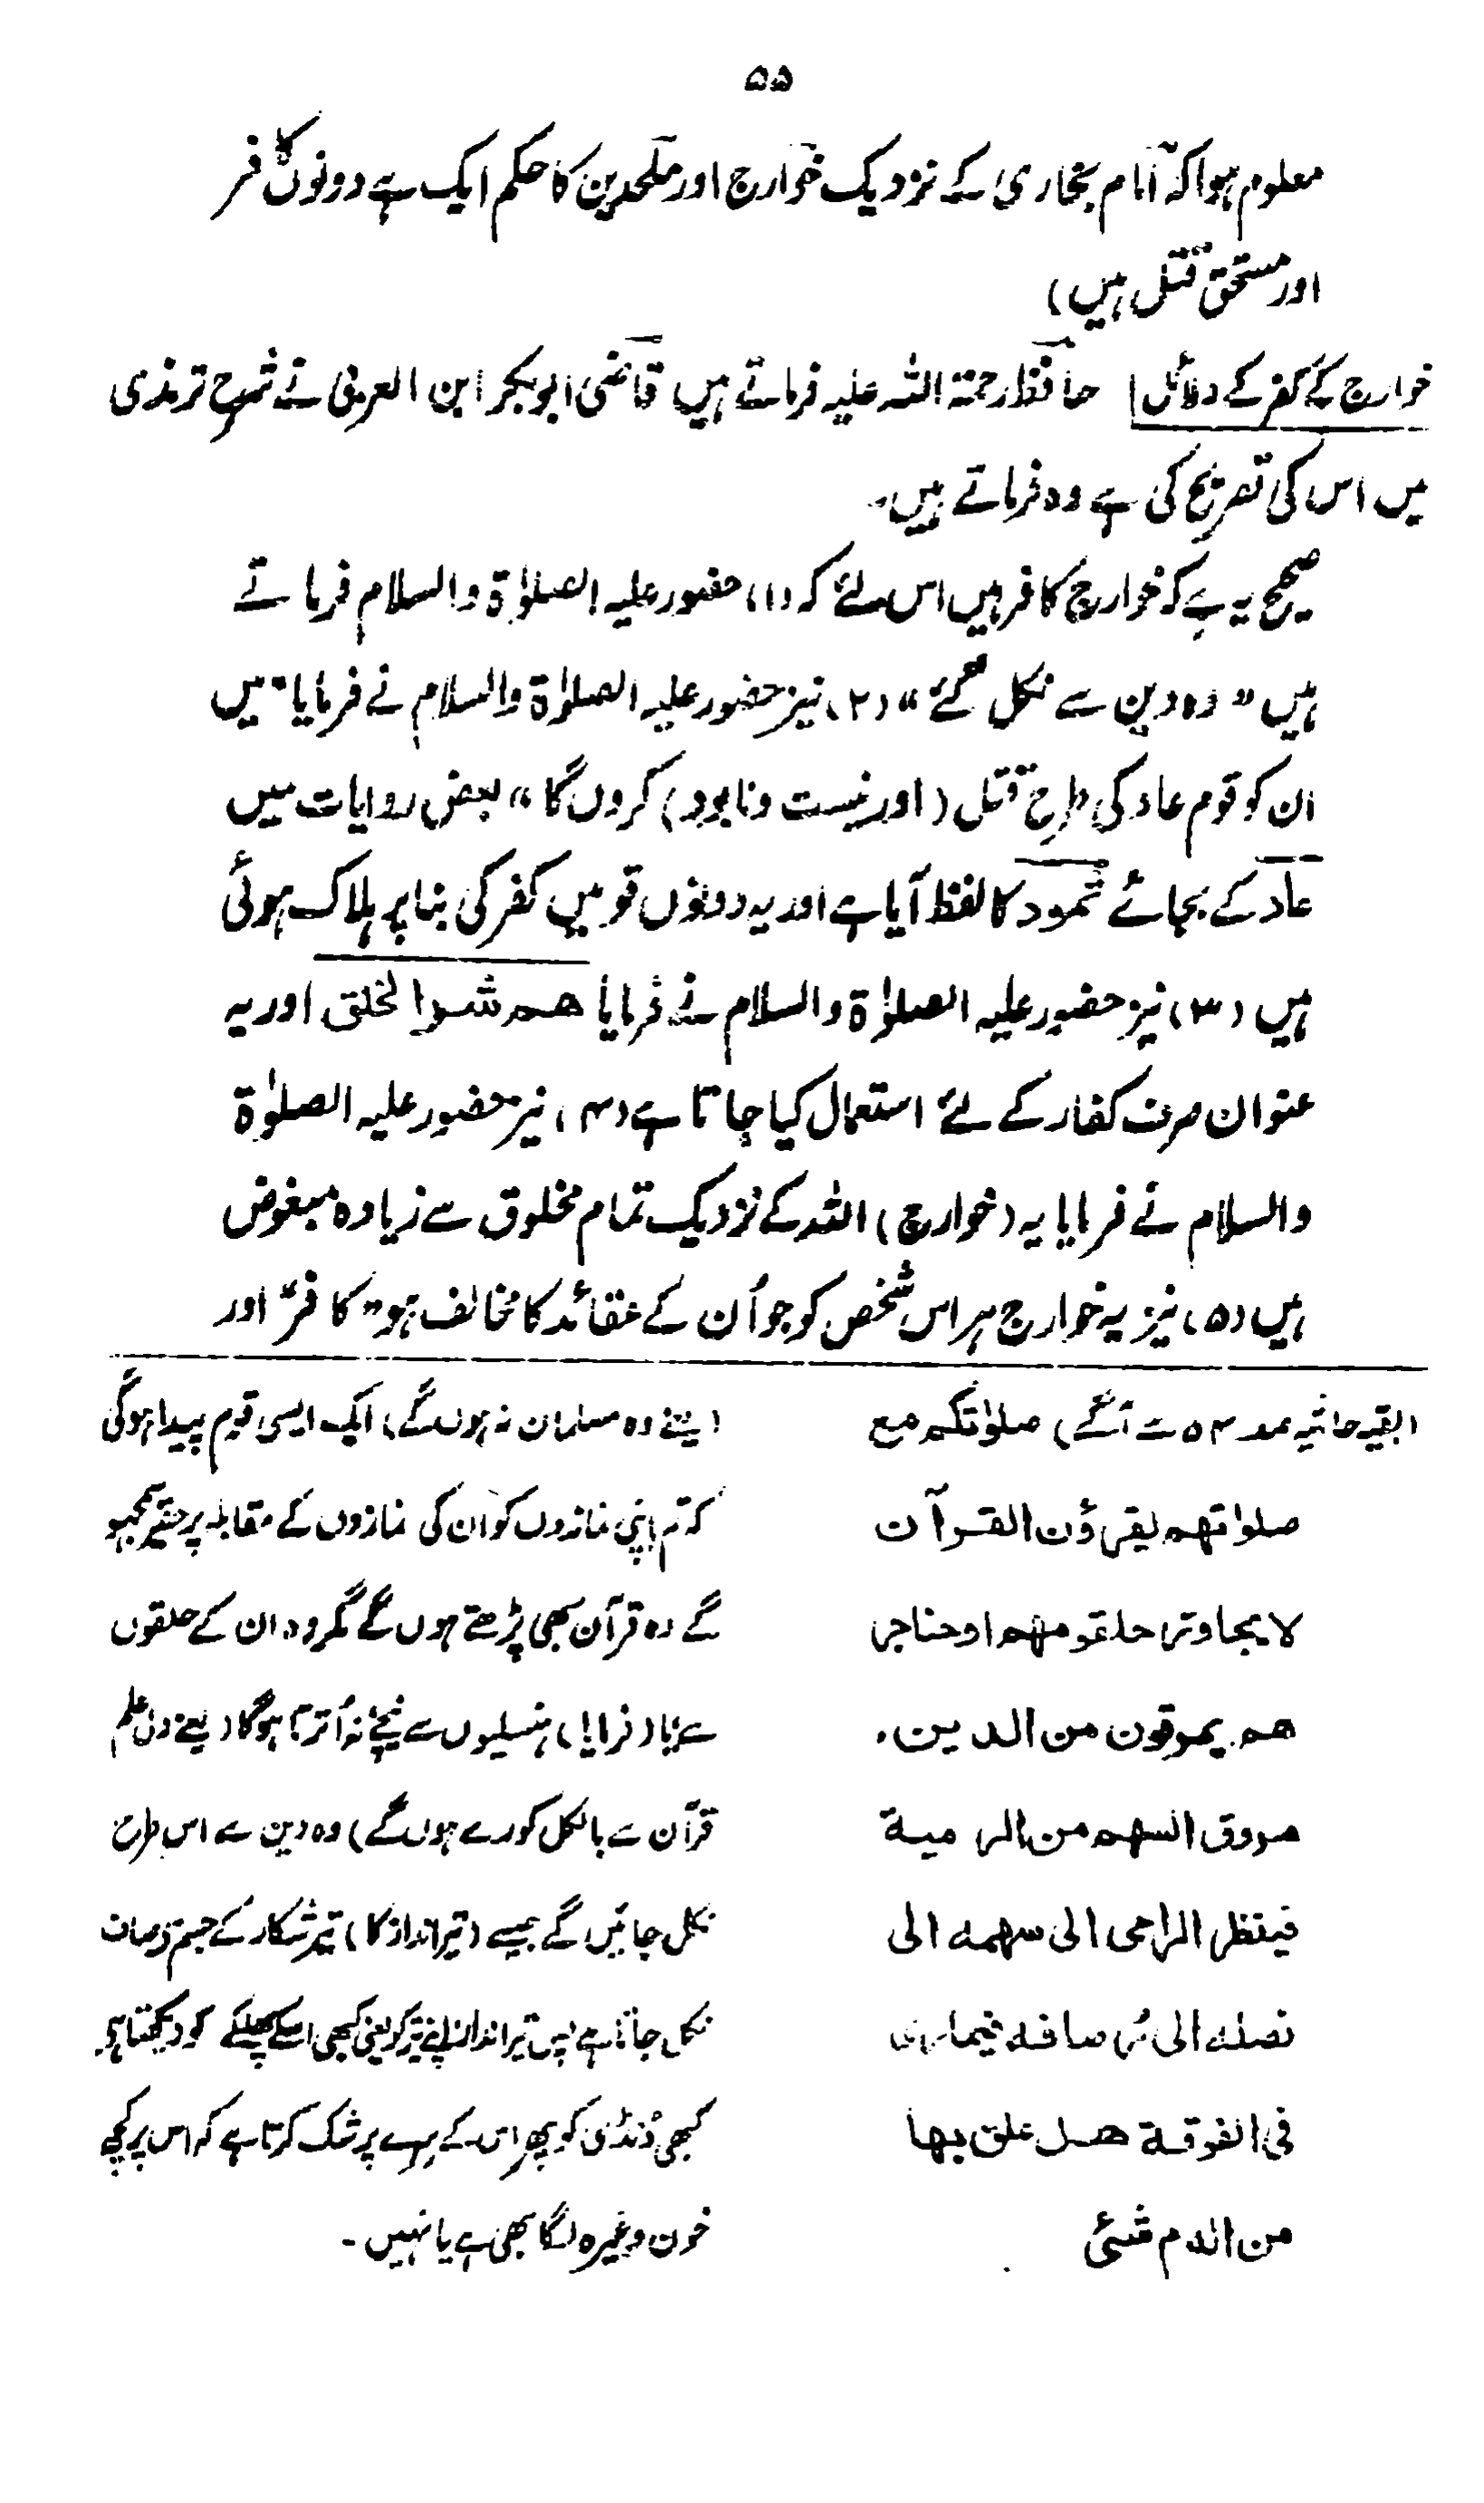 ۵۵
معلوم ہوا کہ امام بخاریؒ کے نزدیک خوارج اور ملحدین کا حکم ایک ہے دونوں کافر
اور مستحق قتل ہیں)
خوارج کے کفر کے دلائل حافظ رحمۃ اللہ علیہ فرماتے ہیں قاضی ابوبکر ابن العربی نے شرح ترمذی
میں اس کی تصریح کی ہے وہ فرماتے ہیں۔
صحیح یہ ہے کہ خوارج کافر ہیں اس لئے کہ (۱)، حضور علیہ الصلوٰۃ والسلام فرماتے
ہیں "وہ دین سے نکل گئے" (۲)، نیز حضور علیہ الصلوٰۃ والسلام نے فرمایا "میں
ان کو قوم عاد کی طرح قتل (اور نیست و نابود) کروں گا" بعض روایات میں
عاد کے بجائے ثمود کا لفظ آیا ہے اور یہ دونوں قومیں کفر کی بنا پر ہلاک ہوئی
ہیں (۳)، نیز حضور علیہ الصلوٰۃ والسلام نے فرمایا هم شر الخلق اور یہ
عنوان صرف کفار کے لئے استعمال کیا جاتا ہے (۴)، نیز حضور علیہ الصلوٰۃ
والسلام نے فرمایا یہ (خوارج) اللہ کے نزدیک تمام مخلوق سے زیادہ مبغوض
ہیں (۵)، نیز یہ خوارج ہر اس شخص کو جو اُن کے عقائد کا مخالف ہو "کافر" اور
(بقیہ حاشیہ صہ ۵۴ سے آگے) صلوٰتکم مع
صلواتهم یقرؤن القرآن
لا یجاوز حلقومهم او حناجر
هم یمرقون من الدین،
مروق السهم من الرمیة
فینظر الرامی الی سهمه الی
نصله الی رصافه فیتماری
فی الفوقة هل علق بها
من الدم شئی
(یعنے وہ مسلمان نہ ہوں گے)، ایک ایسی قوم پیدا ہوگی
کہ تم اپنی نمازوں کو ان کی نمازوں کے مقابلہ پر حقیر سمجھو
گے وہ قرآن بھی پڑھتے ہوں گے مگر وہ ان کے حلقوں
سے یا (فرمایا)، ہنسلیوں سے نیچے نہ اُترتا ہوگا (یعنے علم
قرآن سے بالکل کورے ہوں گے) وہ دین سے اس طرح
نکل جائیں گے جیسے (تیر انداز کا)، تیر شکار کے جسم سے صاف
نکل جاتا ہے پس تیر انداز اپنے تیر کو یعنی کبھی اسکے پھل کے کو دیکھتا ہے
کبھی ڈنڈی کو پھر اس کے سرے پر شک کرتا ہے کہ اس پر کچھ
خون وغیرہ لگا بھی ہے یا نہیں۔